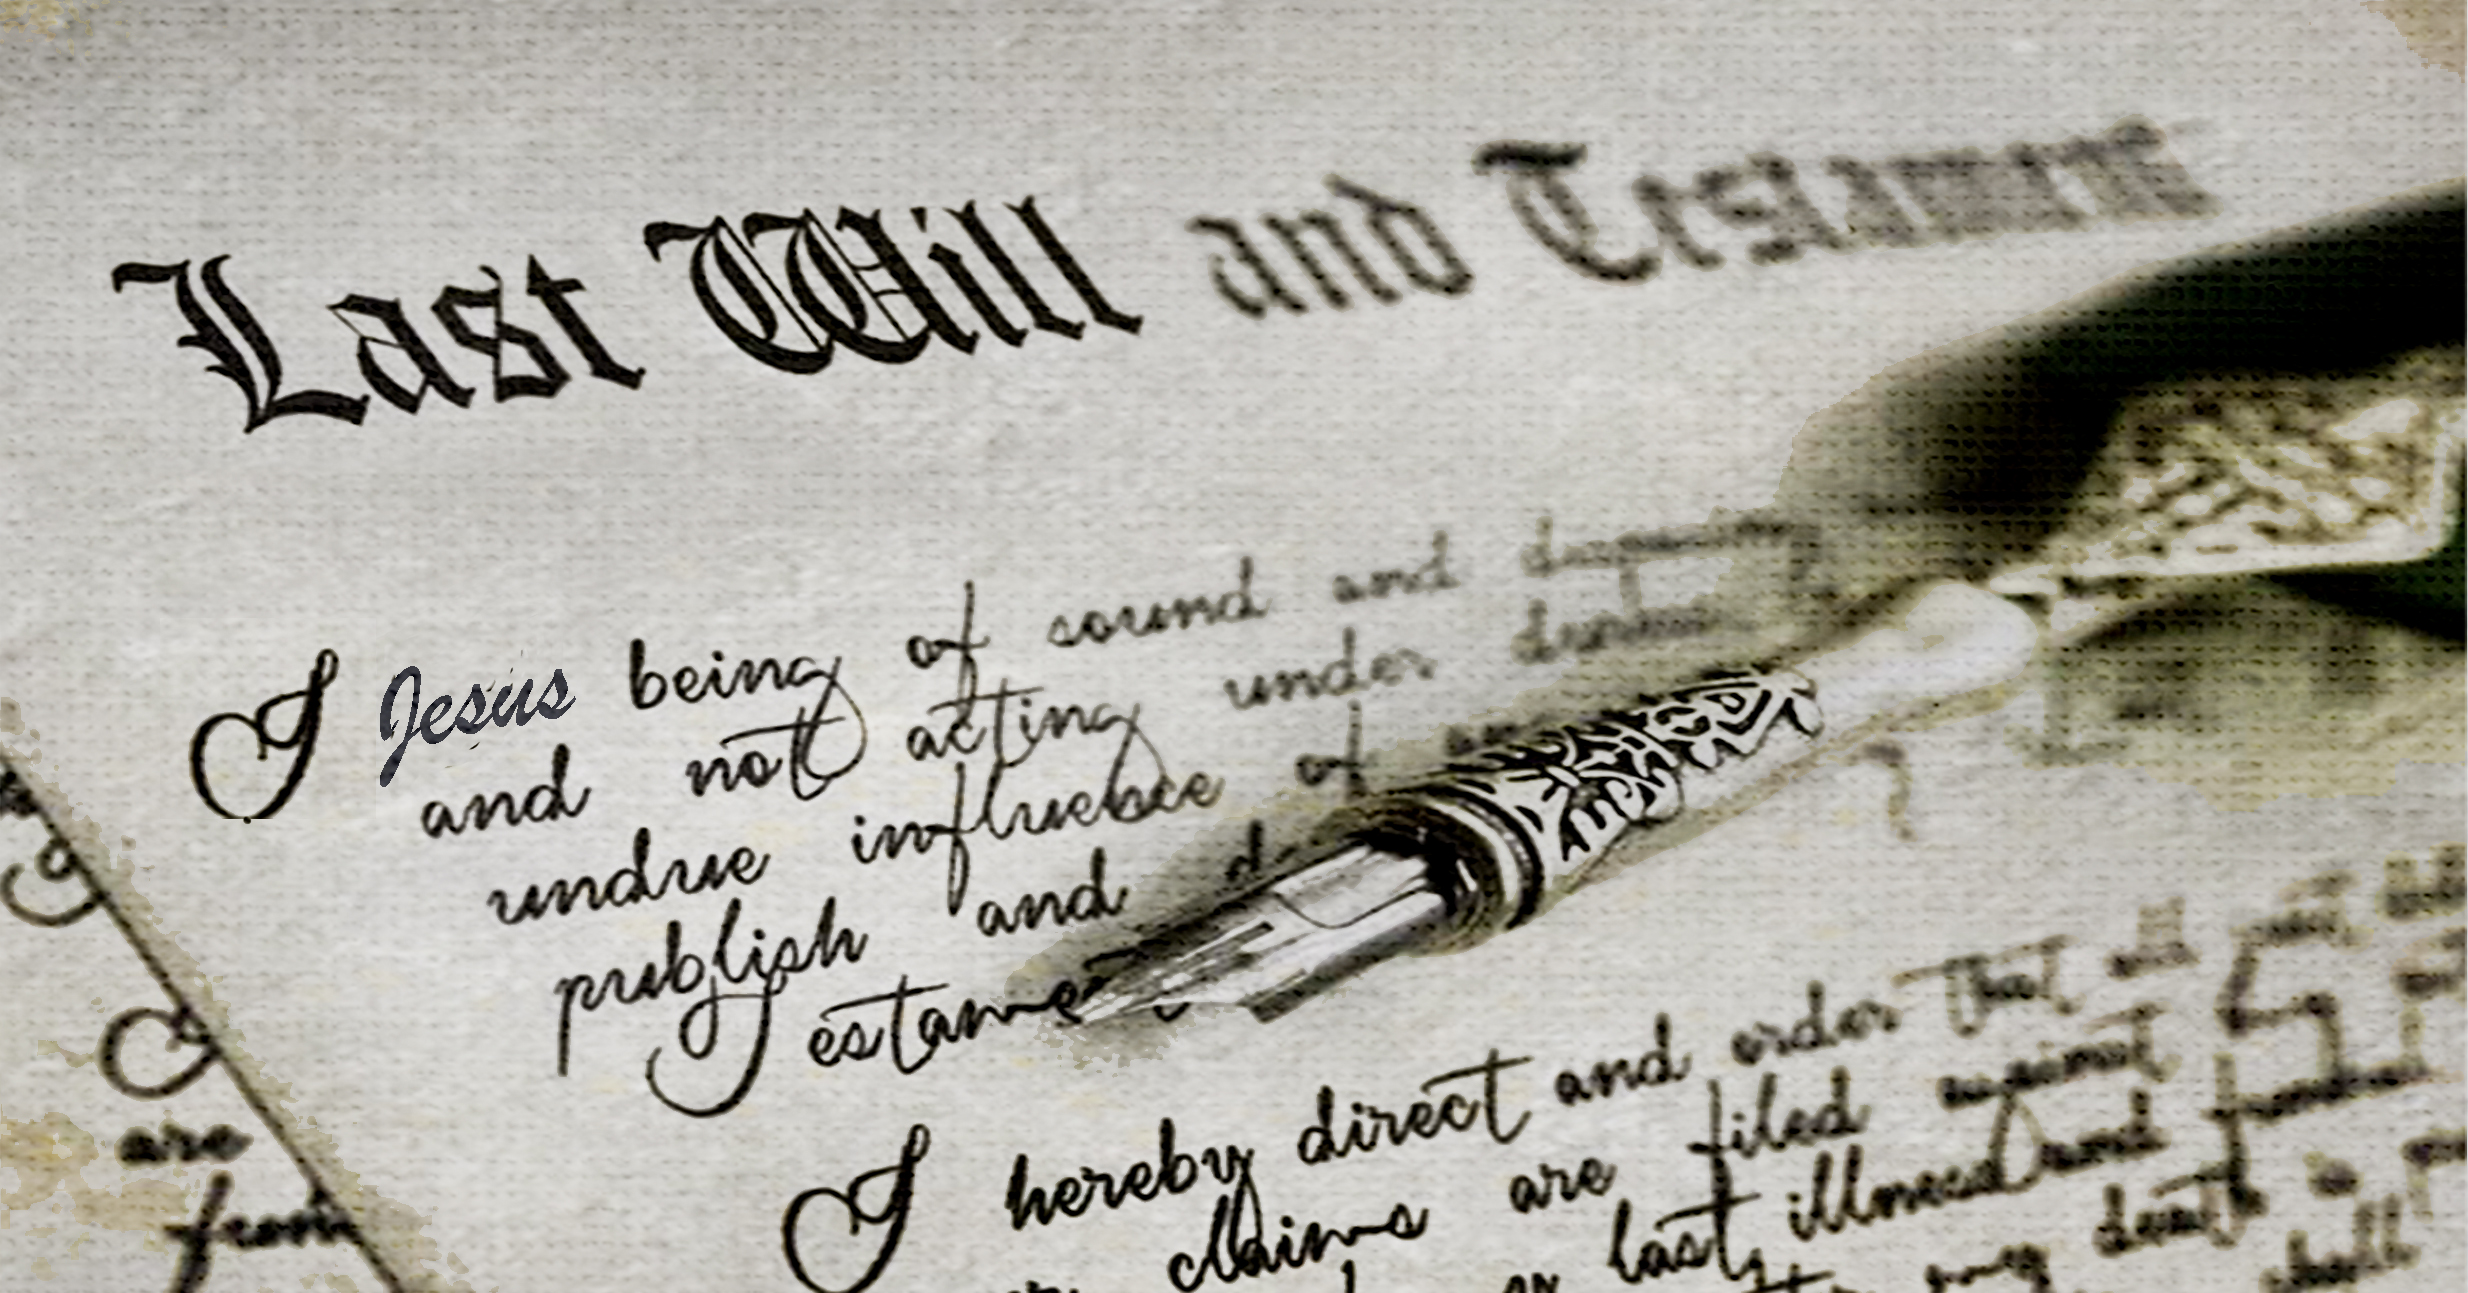 Last Will and Testament
I Jesus being of sound and
and not acting under
undue influence of
publish and
estame
I hereby direct and order that all
claims are filed against
last illness and funeral
my death
shall
are
from